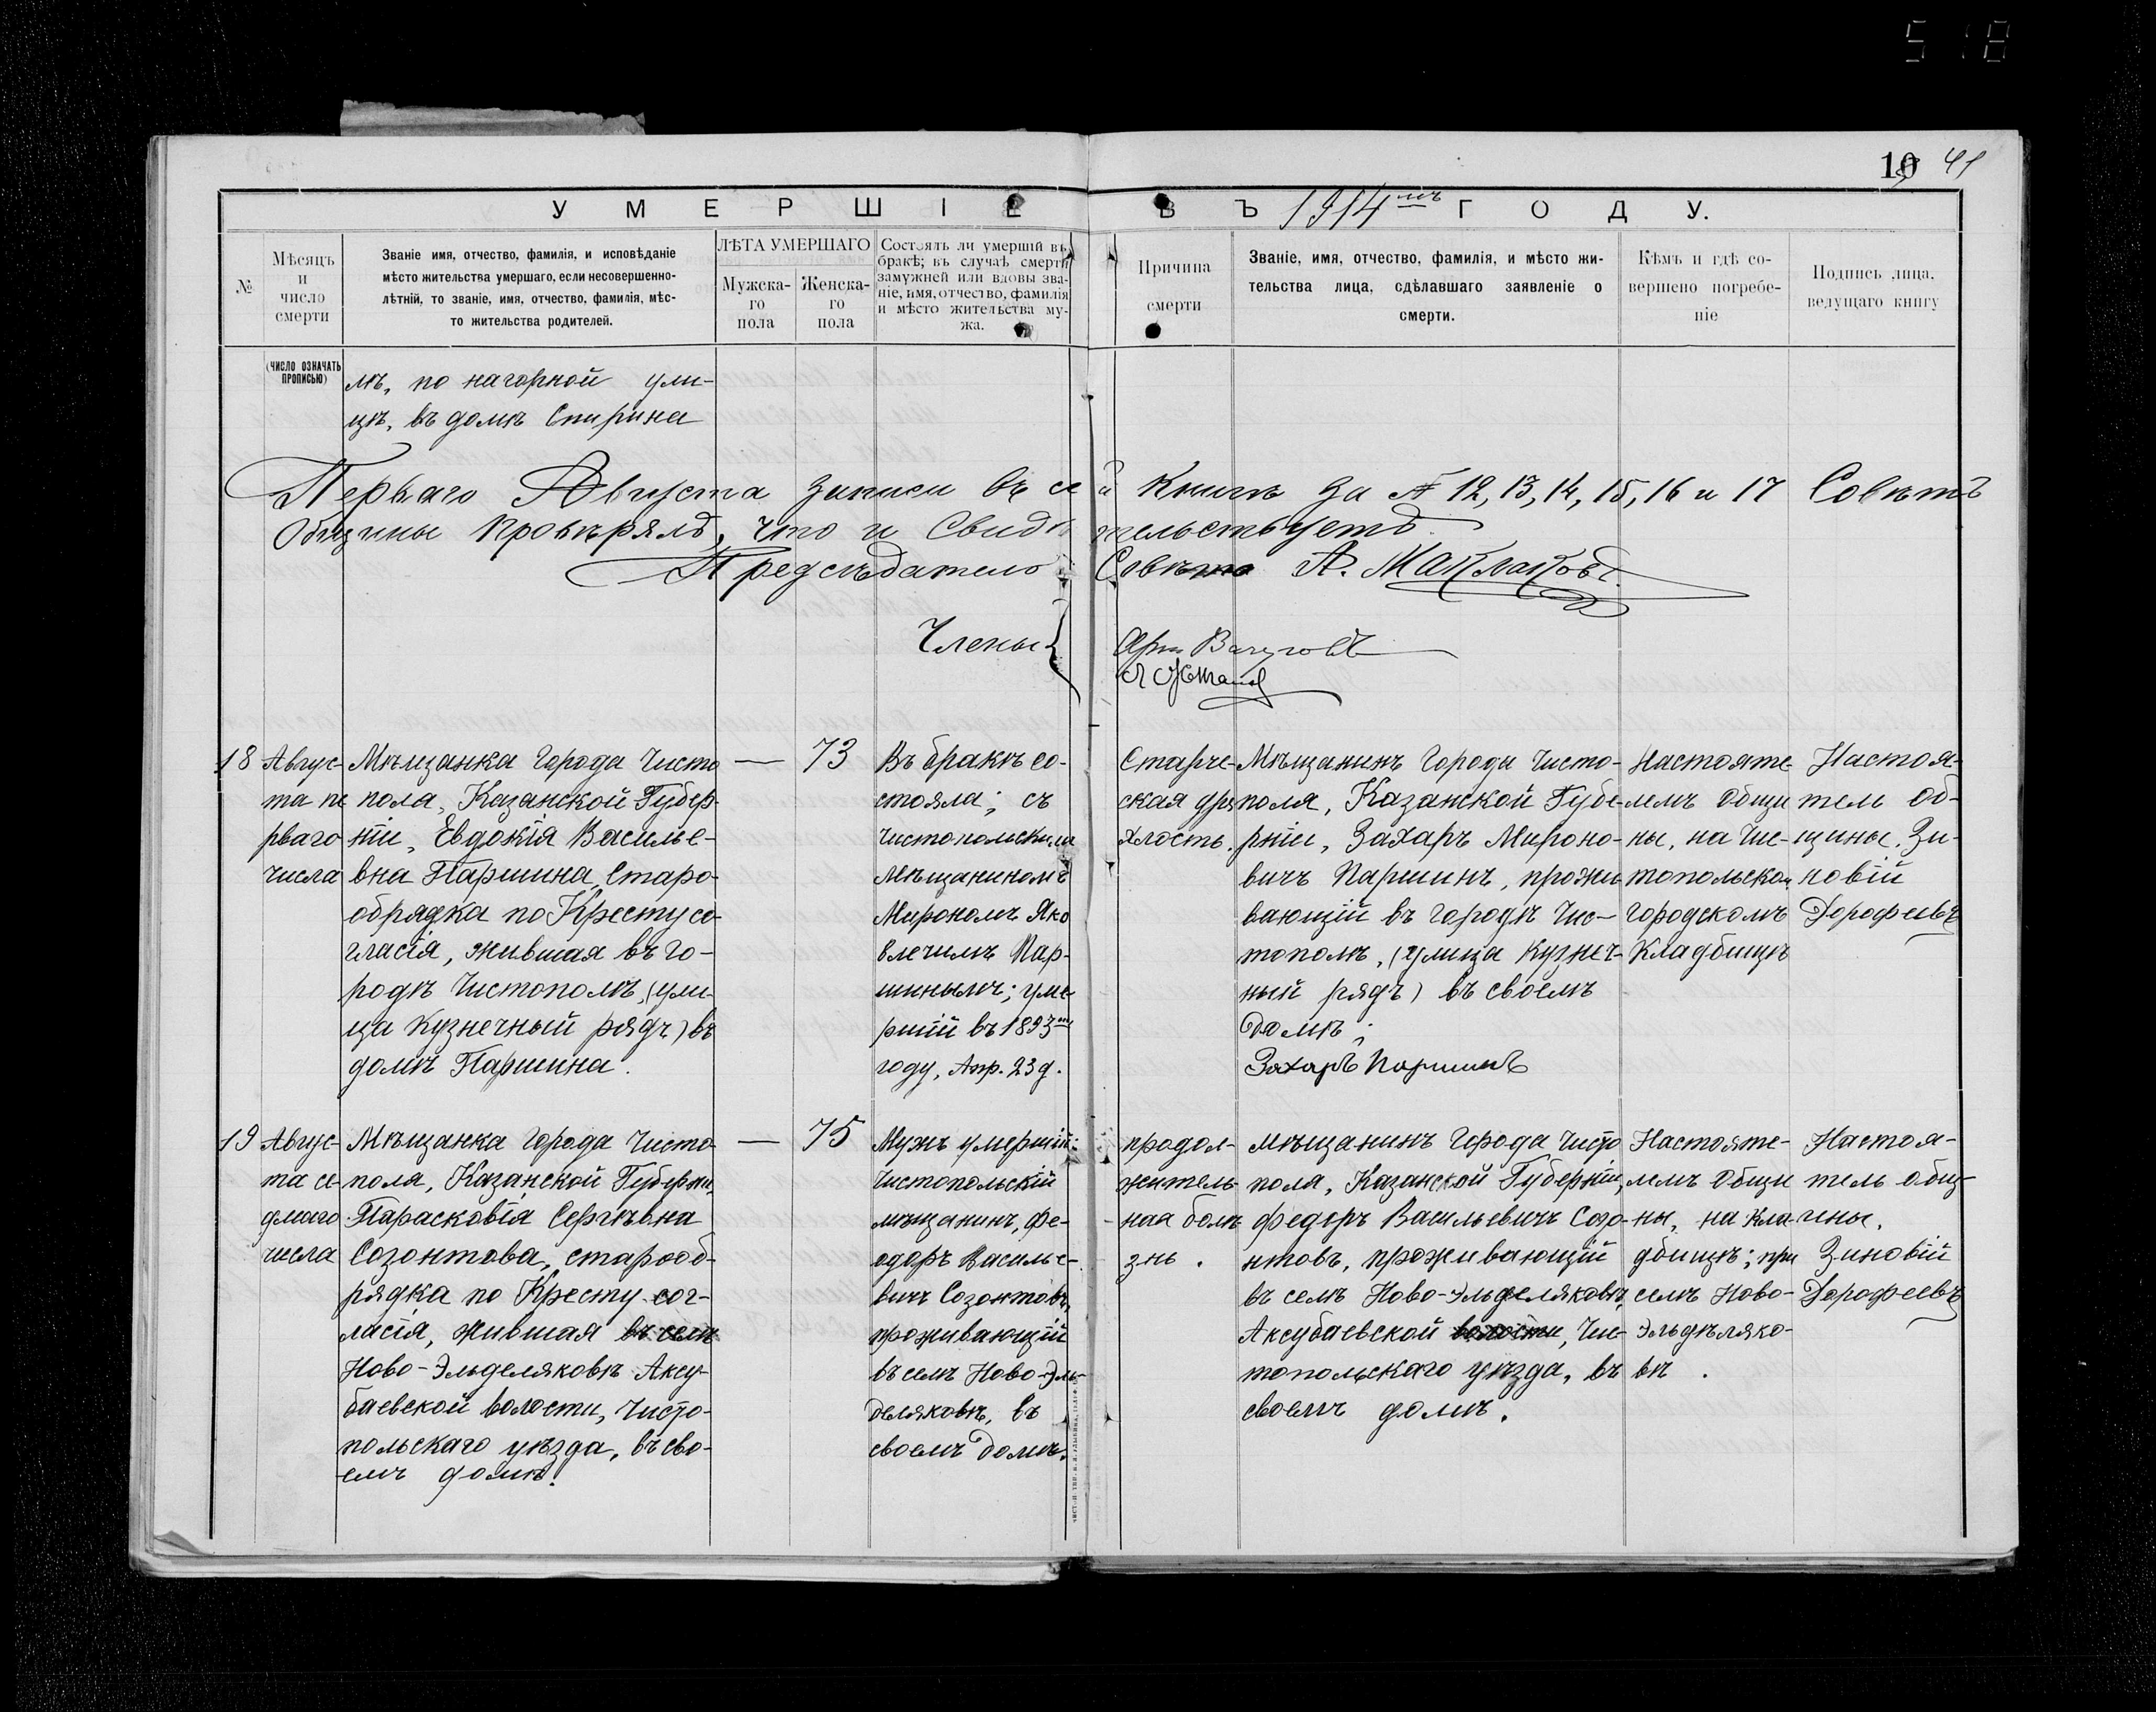 518
10 41
УМЕРШІЕ ВЪ 1914мъ ГОДУ.
№
Мѣсяцъ
и
число
смерти
Званіе имя, отчество, фамилія, и исповѣданіе
мѣсто жительства умершаго, если несовершенно-
лѣтній, то званіе, имя, отчество, фамилія, мѣс-
то жительства родителей.
ЛѢТА УМЕРШАГО
Мужска-
го
пола
Женска-
го
пола
Состоялъ ли умершій въ
бракѣ; въ случаѣ смерти
замужней или вдовы зва-
ніе, имя, отчество, фамилія
и мѣсто жительства му-
жа.
Причина
смерти
Званіе, имя, отчество, фамилія, и мѣсто жи-
тельства лица, сдѣлавшаго заявленіе о
смерти.
Кѣмъ и гдѣ со-
вершено погребе-
ніе
Подпись лица,
ведущаго книгу
(ЧИСЛО ОЗНАЧАТЬ
ПРОПИСЬЮ)
лѣ, по нагорной ули-
цѣ, въ домѣ Спирина
Перваго Августа записи въ сей Книгѣ за № 12, 13, 14, 15, 16 и 17 Совѣтъ
Общины провѣрялъ, что и Свидѣтельствуетъ
Предсѣдатель Совѣта А. Маклаковъ.
Члены
18
Авгус-
та пе
рваго
числа
Мѣщанка города Чисто
поля, Казанской Губер-
ніи, Евдокія Василье-
вна Паршина, Старо-
обрядка по Кресту со-
гласія, жившая въ го-
родѣ Чистополѣ, (ули-
ца Кузнечный рядъ) въ
домѣ Паршина.
—
73
Въ бракѣ со-
стояла; съ
Чистопольскимъ
мѣщаниномъ
Мирономъ Яко
влечимъ Пар-
шинымъ; уме-
ршій въ 1893мъ
году, Апр. 23 д.
Старче-
ская дря
хлость.
Мѣщанинъ города Чисто-
поля, Казанской Губе-
рніи, Захаръ Мироно-
вичъ Паршинъ, прожи
вающій въ городѣ Чис-
тополѣ, (улица Кузнеч-
ный рядъ) въ своемъ
домѣ;
Захаръ Паршинъ
Настояте
лемъ Общи
ны, на Чис-
топольском
городскомъ
Кладбищѣ
Настоя-
тель Об-
щины. Зи-
новій
Дорофеевъ
19
Авгус-
та се-
дмаго
числа
Мѣщанка города Чисто-
поля, Казанской Губерніи,
Парасковія Сергѣевна
Созонтова, старооб-
рядка по Кресту сог-
ласія, жившая въ селѣ
Ново-Эльделяковѣ Аксу-
баевской волости, Чисто-
польскаго уѣзда, въ сво-
емъ домѣ.
—
75
Мужъ умершій:
Чистопольскій
мѣщанинъ, Фе-
одоръ Василье-
вичъ Созонтовъ,
проживающій
въ селѣ Ново-Эль-
деляковѣ, въ
своемъ домѣ.
продол-
житель-
ная болѣ
знь.
мѣщанинъ города Чисто
поля, Казанской Губерніи,
Федоръ Васильевичъ Созо-
нтовъ, проживающій
въ селѣ Ново-Эльделяковѣ,
Аксубаевской волости, Чис-
топольскаго уѣзда, въ
своемъ домѣ.
Настояте-
лемъ Общи
ны, на кла-
дбищѣ; при
селѣ Ново-
Эльдѣляко-
вѣ.
Настоя-
тель общ-
ины.
Зиновій
Дорофеевъ